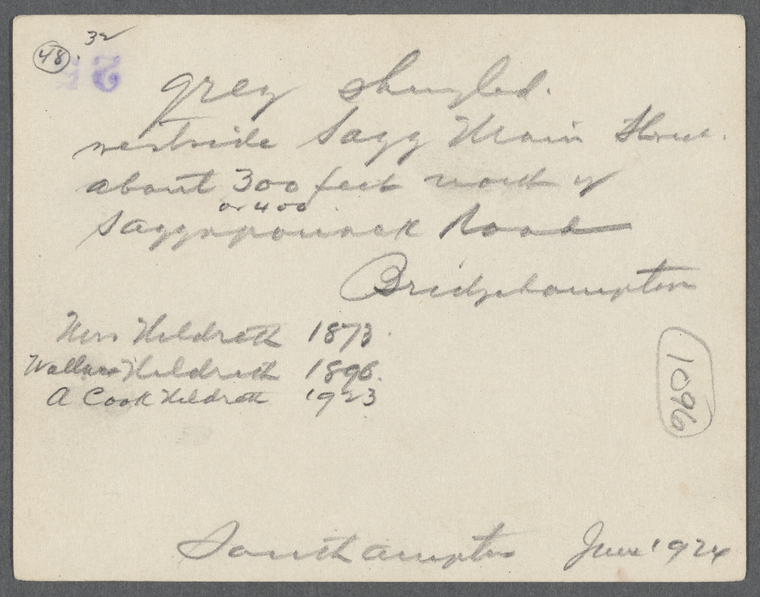 48
32
grey shingled.
westside Sagg Main Street.
about 300 feet north of
or 400
Saggaponack Road
Bridgehampton
Mrs Hildreth 1873
Wallace Hildreth 1896.
A Cook Hildreth 1923
1096
Southampton June 1924